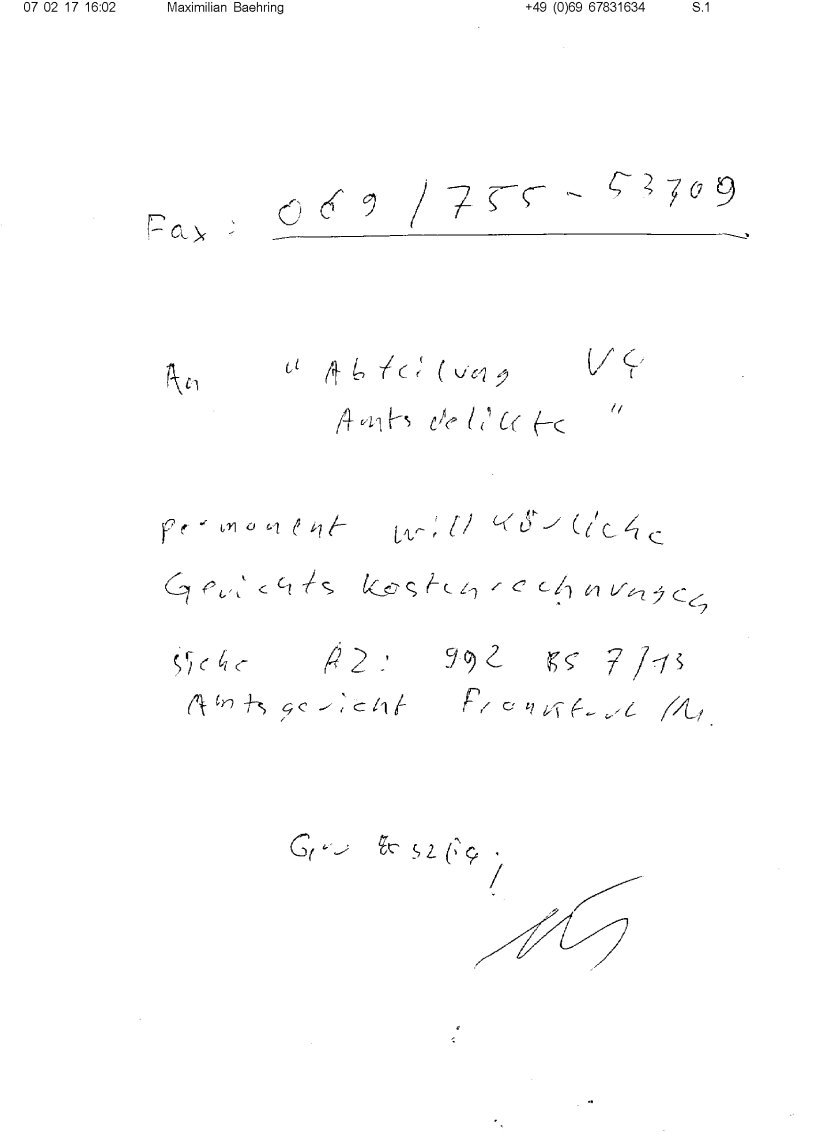 07 02 17 16:02 Maximilian Baehring +49 (0)69 67831634 S.1
Fax: 069/755-53709
An "Abteilung V4
Amtsdelikte"
permanent willkürliche
Gerichtskostenrechnungen
siehe AZ: 992 BS 7/13
Amtsgericht Frankfurt /M.